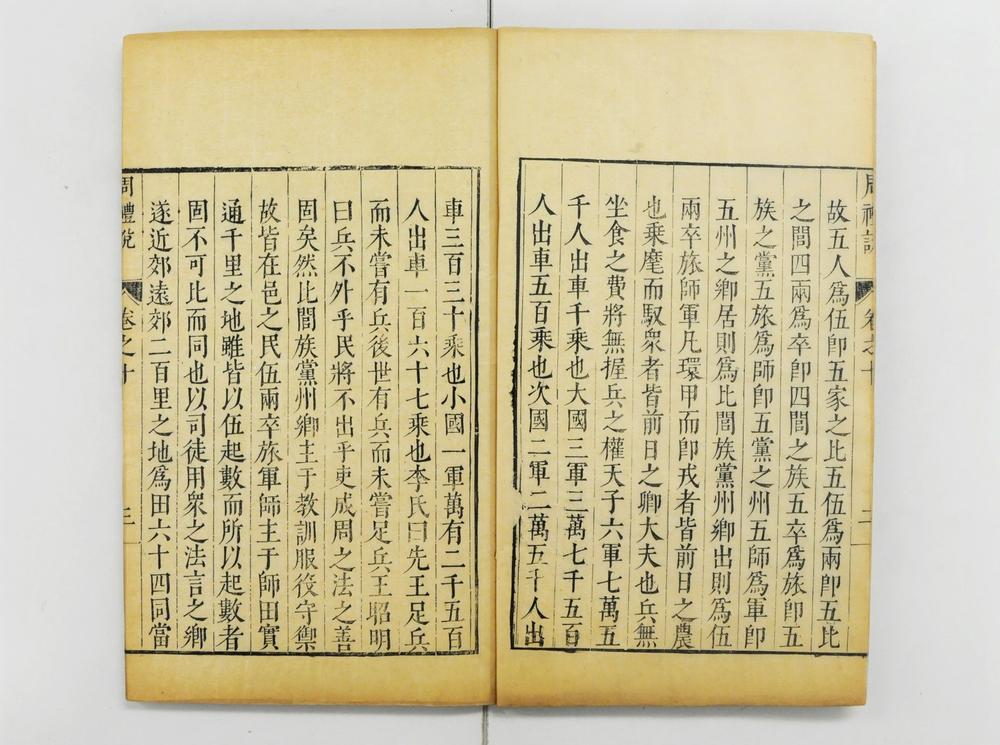 故五人爲伍卽五家之比五伍爲兩卽五比
之閭四兩爲卒卽四閭之族五卒爲旅卽五
族之黨五旅爲師卽五黨之州五師爲軍卽
五州之鄉居則爲比閭族黨州鄉出則爲伍
兩卒旅師軍凡環甲而卽戎者皆前日之農
也乘麾而馭衆者皆前日之卿大夫也兵無
坐食之費將無握兵之權天子六軍七萬五
千人出車千乘也大國三軍三萬七千五百
人出車五百乘也次國二軍二萬五千人出
車三百三十乘也小國一軍萬有二千五百
人出車一百六十七乘也李氏曰先王足兵
而未嘗有兵後世有兵而未嘗足兵王昭明
曰兵不外乎民將不出乎吏成周之法之善
固矣然比閭族黨州鄉主于教訓服役守禦
故皆在邑之民伍兩卒旅軍師主于師田實
通千里之地雖皆以伍起數而所以起數者
固不可比而同也以司徒用衆之法言之鄉
遂近郊遠郊二百里之地爲田六十四同當
周禮說
卷之十
三